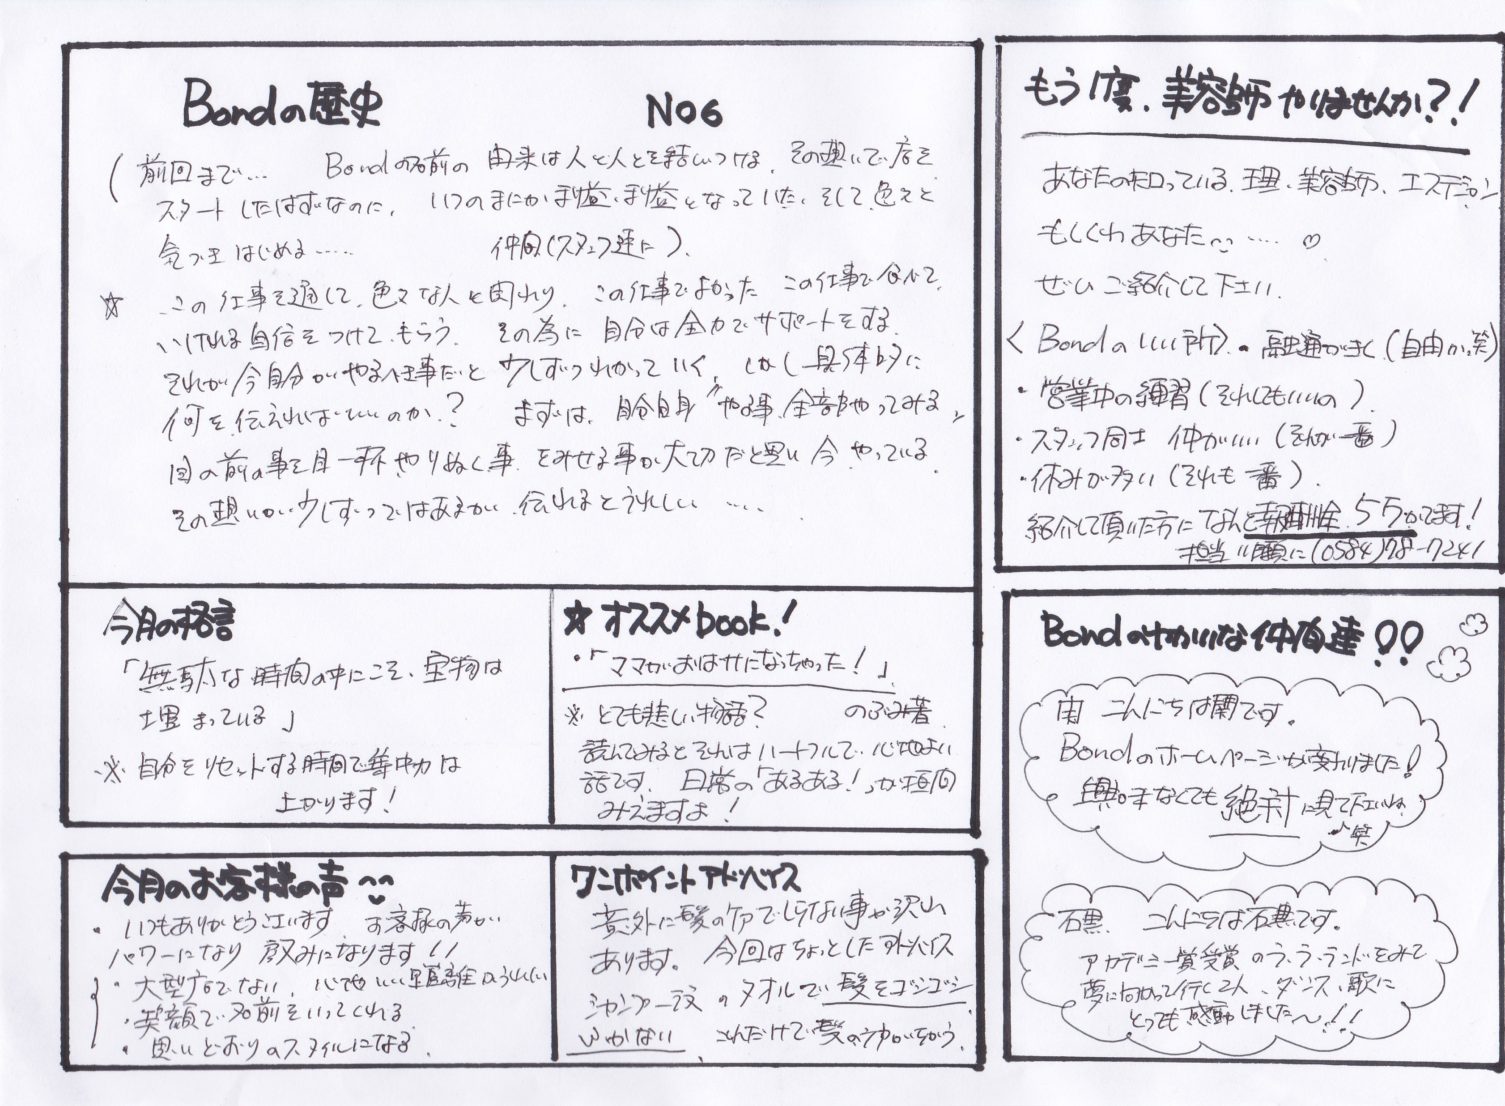 Bondの歴史 NO6
(前回まで… Bondの名前の由来は人と人とを結いつける、その想いで店を
スタートしたはずなのに、いつのまにか利益、利益となっていた。そして色々と
気づきはじめる…… 仲間(スタッフ達に)
☆ この仕事を通して、色々な人と関わり、この仕事でよかった この仕事で食べて
いける自信をつけてもらう、その為に 自分は全力でサポートをする、
それが今自分がやるべき事だと 少しずつわかっていく、しかし具体的に
何を伝えればいいのか? まずは、自分自身がやる事、全部やってみる、
目の前の事を目一杯やりぬく事 をみせる事が大切だと思い今 やっている
その想いが少しずつではあるが、伝わるとうれしい ‥‥
今月の格言
「無駄な時間の中にこそ、宝物は
埋まっている」
※ 自分をリセットする時間で集中力は
上がります!
☆ オススメbook!
・「ママがおばけになっちゃった!」
※ とても悲しい物語? のぶみ著
読んでみるとそれはハートフルで、心地よい
話です。日常の「あるある!」が垣間
みえますよ!
今月のお客様の声
・いつもありがとうございます お客様の声が
パワーになり 励みになります!!
・大型店でない、心地いい距離がうれしい
・笑顔で名前をいってくれる
・思いどおりのスタイルになる
ワンポイントアドバイス
意外に髪のケアでしらない事が沢山
あります。今回はちょっとしたアドバイス
シャンプー後のタオルで髪をゴシゴシ
ふかない、これだけで髪の がちがう。
もう1度、美容師やりませんか?!
あなたの知っている、理・美容師、エステシャン
もしくわあなた〜…… ♡
ぜひご紹介して下さい。
〈Bondのいい所〉・融通がきく(自由か、笑)
・営業中の練習(それでもいいの)
・スタッフ同士 仲がいい(それが一番)
・休みが多い(それも一番)
紹介して頂いた方になんと報酬金、5万がでます!
担当 (0584)78-7241
Bondのゆかいな仲間達!!
南 こんにちは南です。
Bondのホームページが変わりました!
興味なくても絶対に見て下さいね
笑
石黒 こんにちは石黒です。
アカデミー賞受賞のラ・ラ・ランドをみて
夢に向かって行く2人、ダンス、歌に
とっても感動しました〜!!